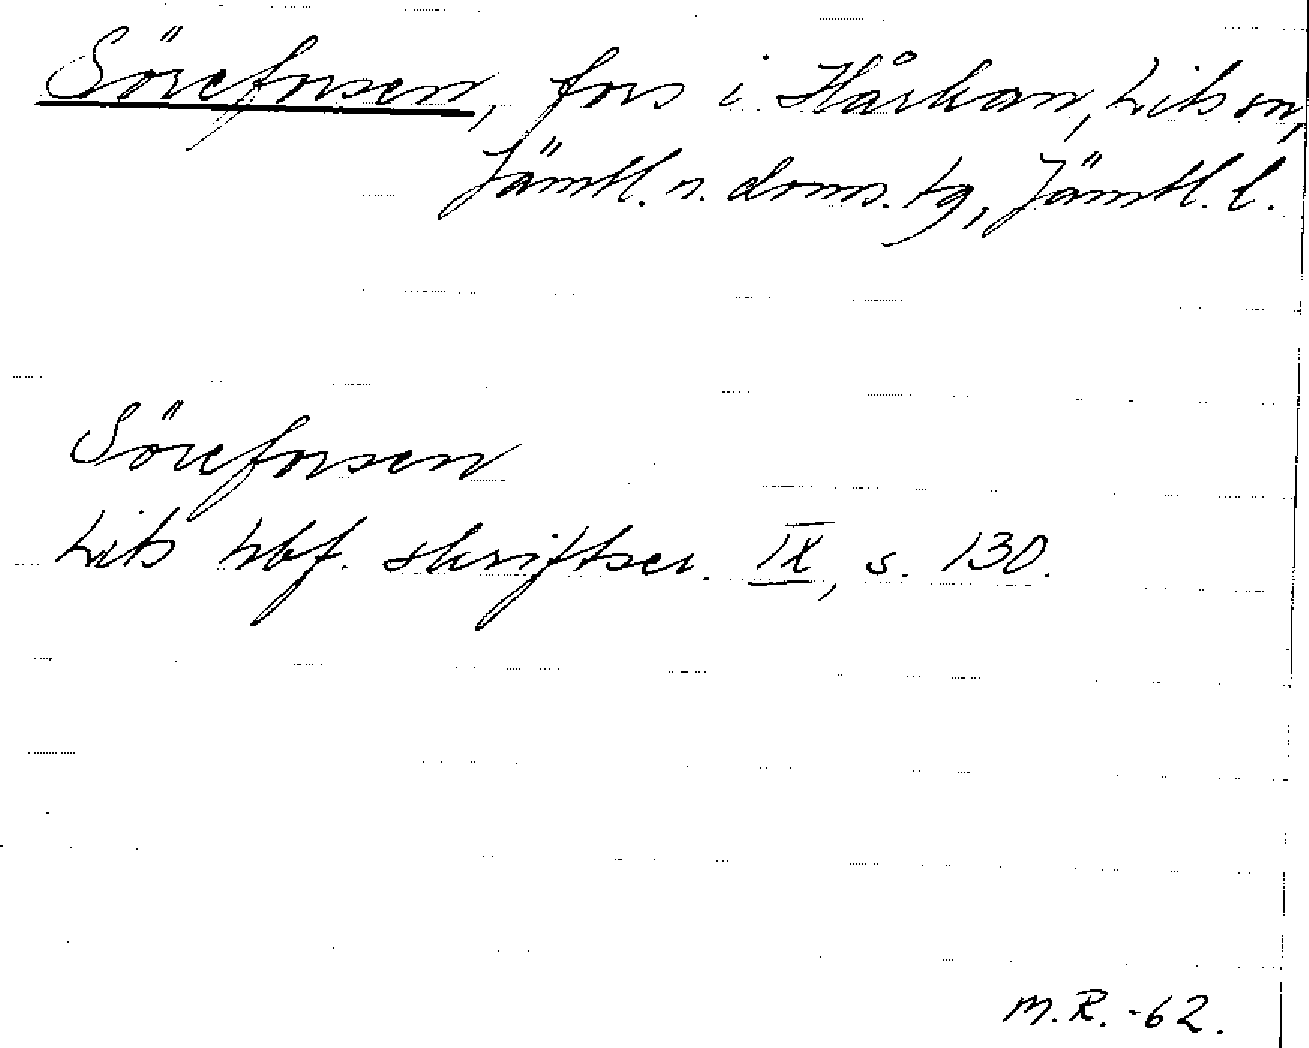 Söreforsen, fors i Hårkan, Lits sn,
Jämtl. n. doms. tg, Jämtl. l.
Söreforsen
Lits hbf. skriftser. IX, s. 130.
M.R. -62.